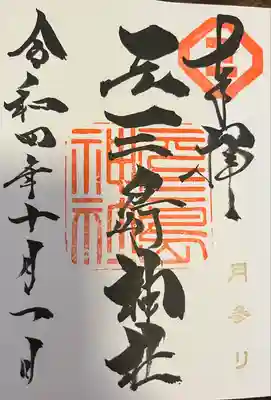 奉拝
元三島神社
令和四年十月一日
月参り